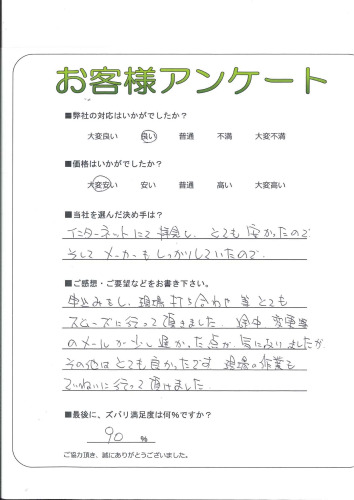 お客様アンケート
■弊社の対応はいかがでしたか？
大変良い 良い 普通 不満 大変不満
■価格はいかがでしたか？
大変安い 安い 普通 高い 大変高い
■当社を選んだ決め手は？
インターネットにて拝見し、とても安かったので
そして メーカーもしっかりしていたので
■ご感想・ご要望などをお書き下さい。
申込みをし、現場打ち合わせ等とても
スムーズに行って頂きました。途中、変更等
のメールが少し遅かった点が、気になりましたが
その他はとても良かったです 現場の作業も
ていねいに行って頂けました。
■最後に、ズバリ満足度は何％ですか？
90 ％
ご協力頂き、誠にありがとうございました。